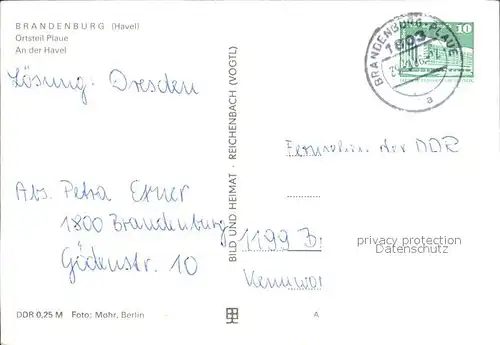 BRANDENBURG (Havel)
Ortsteil Plaue
An der Havel
Lösung: Dresden
Abs. Petra Erner
1800 Brandenburg
Gödenstr. 10
DDR 0,25 M Foto: Mohr, Berlin
BILD UND HEIMAT · REICHENBACH (VOGTL)
BRANDENBURG-PLAUE
1803
a
10
Fernsehen der DDR
1199 B
Kennwor
privacy protection
Datenschutz
A